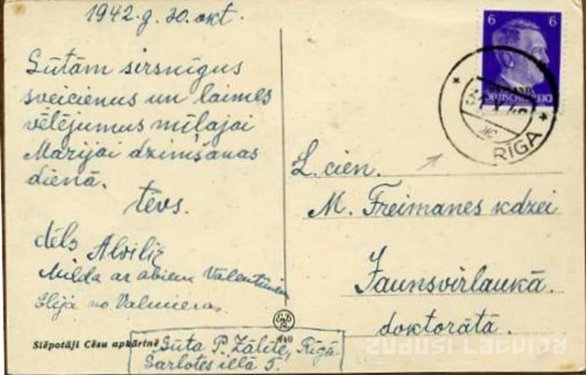 1942. g. 30. okt.
Sūtām sirsnīgus
sveicienus un laimes
vēlējumus mīļajai
Marijai dzimšanas
dienā.
tēvs.
dēls
Milda ar abiem
Elijā no Valmieras
Slēpotāji Cēsu apkārtnē
Sūta P. Zālīte, Rīgā
Sarlotes iela 5.
6 6
RĪGA
L. cien.
M. Freimanes kdzei
Jaunsvirlaukā.
doktorātā.
ZUDUSI LATVIJA